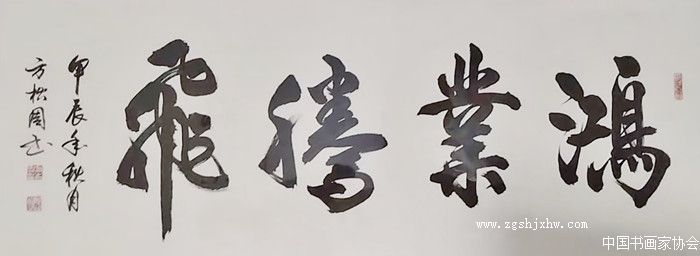 鸿業腾飛
甲辰年秋月
方松周书
www.zgshjxhw.com
中国书画家协会